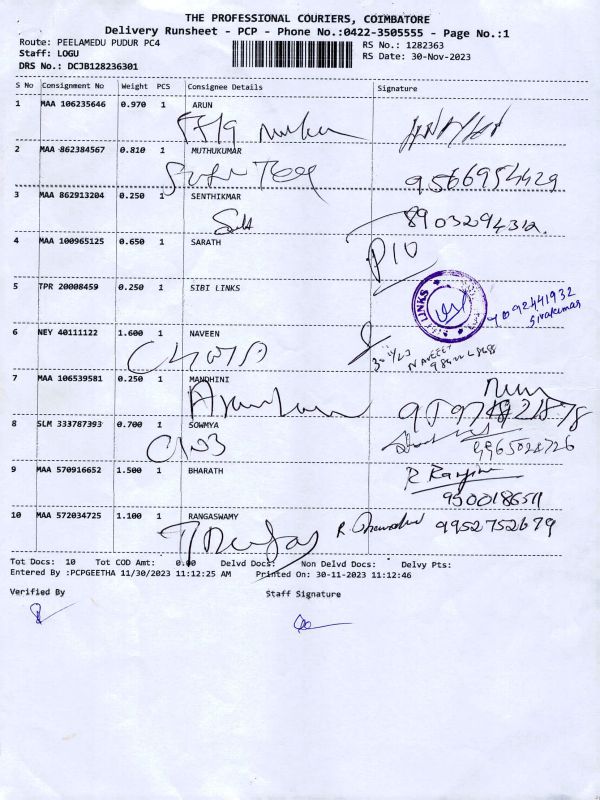 THE PROFESSIONAL COURIERS, COIMBATORE
Delivery Runsheet - PCP - Phone No.:0422-3505555 - Page No.:1
Route: PEELAMEDU PUDUR PC4
RS No.: 1282363
Staff: LOGU
RS Date: 30-Nov-2023
DRS No.: DCJB128236301
S No Consignment No Weight PCS Consignee Details Signature
1 MAA 106235646 0.970 1 ARUN
2 MAA 862384567 0.810 1 MUTHUKUMAR
9566954429
3 MAA 862913204 0.250 1 SENTHIKMAR
8903294312.
4 MAA 100965125 0.650 1 SARATH
P10
5 TPR 20008459 0.250 1 SIBI LINKS
LINKS
9092441932
Sivakumar
6 NEY 40111122 1.600 1 NAVEEN
NAVEEN
7 MAA 106539581 0.250 1 MANDHINI
8 SLM 333787393 0.700 1 SOWMYA
9965028726
9 MAA 570916652 1.500 1 BHARATH
10 MAA 572034725 1.100 1 RANGASWAMY
9952752679
Tot Docs: 10 Tot COD Amt: 0.00 Delvd Docs: Non Delvd Docs: Delvy Pts:
Entered By :PCPGEETHA 11/30/2023 11:12:25 AM Printed On: 30-11-2023 11:12:46
Verified By
Staff Signature